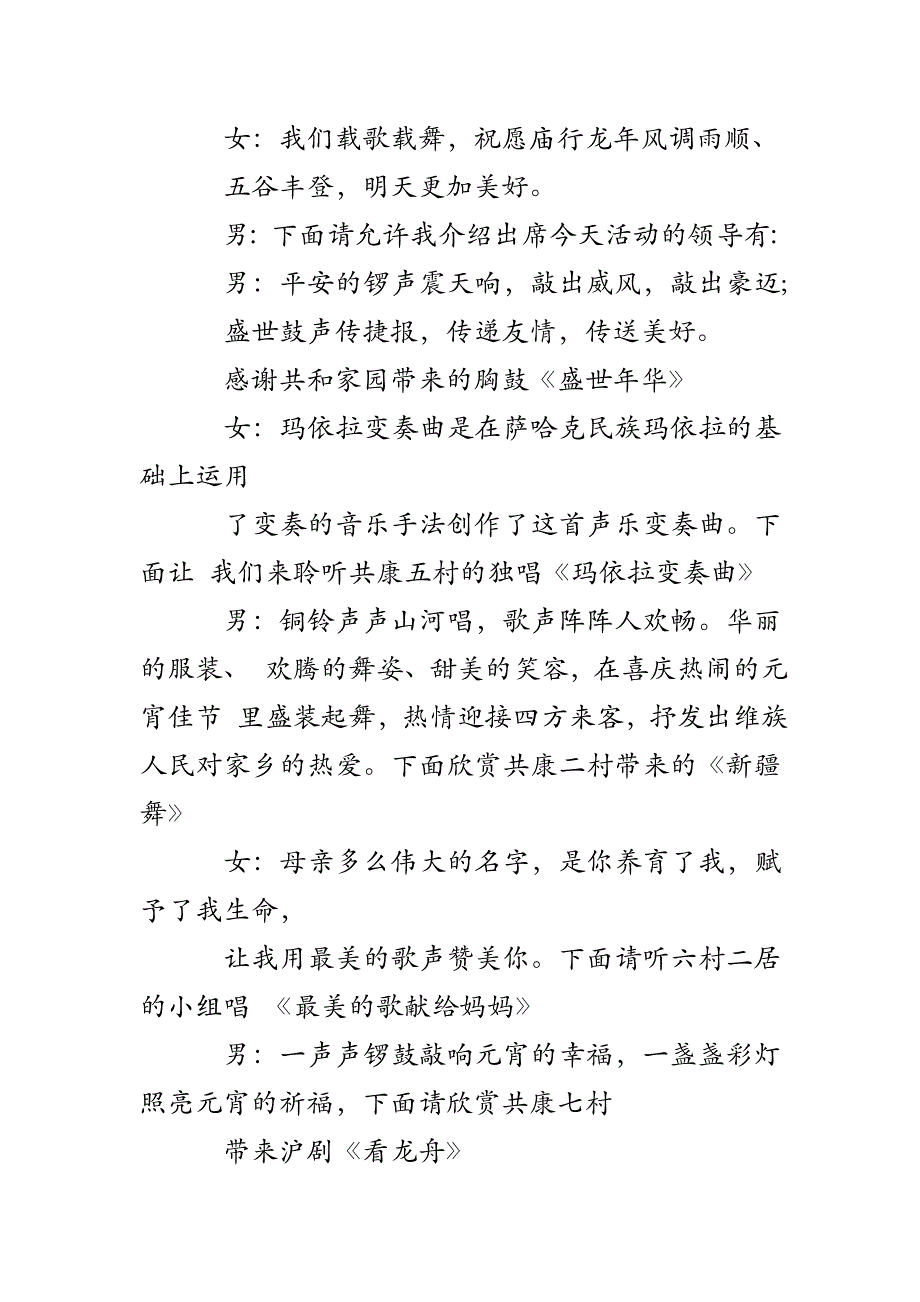 女：我们载歌载舞，祝愿庙行龙年风调雨顺、
五谷丰登，明天更加美好。
男：下面请允许我介绍出席今天活动的领导有：
男：平安的锣声震天响，敲出威风，敲出豪迈；
盛世鼓声传捷报，传递友情，传送美好。
感谢共和家园带来的胸鼓《盛世年华》
女：玛依拉变奏曲是在萨哈克民族玛依拉的基
础上运用
了变奏的音乐手法创作了这首声乐变奏曲。下
面让 我们来聆听共康五村的独唱《玛依拉变奏曲》
男：铜铃声声山河唱，歌声阵阵人欢畅。华丽
的服装、 欢腾的舞姿、甜美的笑容，在喜庆热闹的元
宵佳节 里盛装起舞，热情迎接四方来客，抒发出维族
人民对家乡的热爱。下面欣赏共康二村带来的《新疆
舞》
女：母亲多么伟大的名字，是你养育了我，赋
予了我生命，
让我用最美的歌声赞美你。下面请听六村二居
的小组唱 《最美的歌献给妈妈》
男：一声声锣鼓敲响元宵的幸福，一盏盏彩灯
照亮元宵的祈福，下面请欣赏共康七村
带来沪剧《看龙舟》